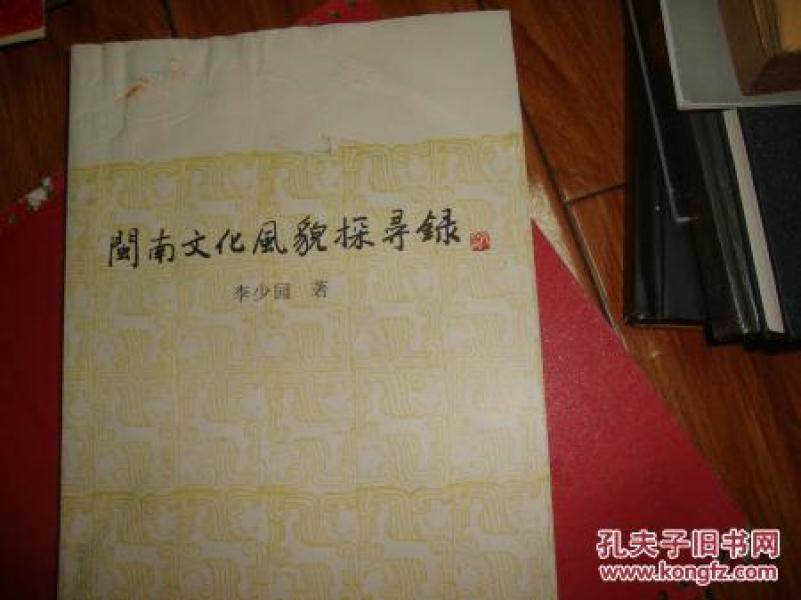 閩南文化風貌探尋録
李少园 著
孔夫子旧书网
www.kongfz.com